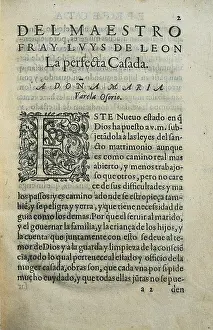 2
DEL MAESTRO
FRAY LVYS DE LEON
La perfecta Casada.
A DONA MARIA
Varela Osorio.
ESTE Nueuo estado en q̃
Dios ha puesto a v.m. subje
tádola a las leyes del san
cto matrimonio aunque
es como camino real mas
abierto, y menos trabajo
so que otros, pero no care
ce de sus difficultades y ma
los passos y es camino adonde se estropieça tam
bié, y se peligra y yerra, y que tiene necessidad
de guia como los demas. Por que el seruir al marido,
y el gouernar la familia, y la criança de los hijos, y
la cuenta que juntamente con esto se deue al te-
mor de Dios y a la guarda y limpieza de la cósciē
cia, todo lo qual pertenece al estado, y officio de la
muger casada, obras son, que cada vna por si pide
mucho cuydado, y que todas ellas juntas no se pue
a 2 den